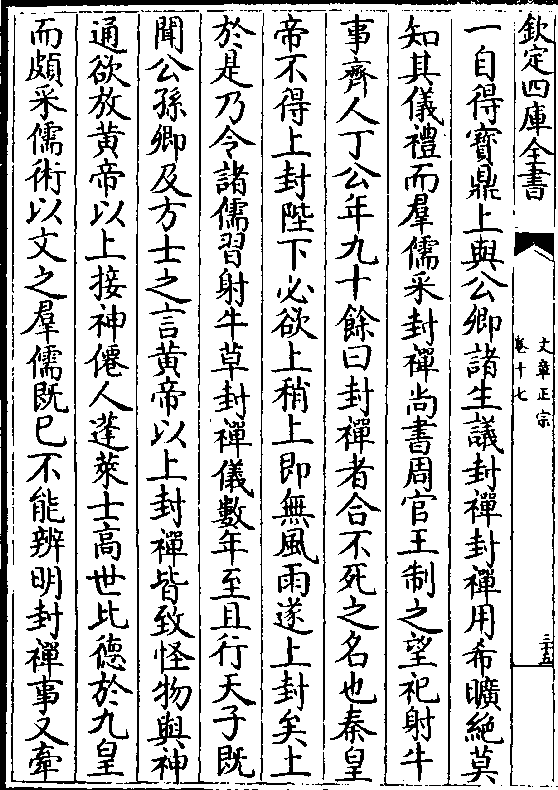 欽定四庫全書
文章正宗
卷十七
三十五
一自得寶鼎上與公卿諸生議封禪封禪用希曠絶莫
知其儀禮而羣儒采封禪尚書周官王制之望祀射牛
事齊人丁公年九十餘曰封禪者合不死之名也秦皇
帝不得上封陛下必欲上稍上即無風雨遂上封矣上
於是乃令諸儒習射牛草封禪儀數年至且行天子既
聞公孫卿及方士之言黄帝以上封禪皆致怪物與神
通欲放黄帝以上接神僊人蓬萊士高世比德於九皇
而頗采儒術以文之羣儒既已不能辨明封禪事又牽